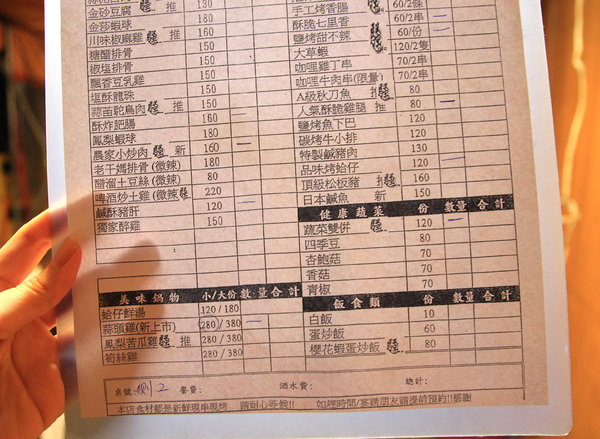 金砂豆腐 推 130
金莎蝦球 180
川味椒麻雞 推 160
糖醋排骨 150
椒塩排骨 150
飄香豆乳雞 150
塩酥龍珠 150
蒜苗鴕鳥肉 推 160
酥炸肥腸 160
鳳梨蝦球 180
農家小炒肉 新 160
老干媽排骨(微辣) 180
醋溜土豆絲(微辣) 80
啤酒炒土雞(微辣) 220
鹹酥豬肝 120
獨家醉雞 150
美味鍋物 小/大份 數量 合計
蛤仔鮮湯 120 / 180
蒜頭雞(新上市) 280 / 380
鳳梨苦瓜雞 推 280 / 380
筍絲雞 280 / 380
手工烤香腸 60/2條
酥脆七里香 60/2串
鹽烤甜不辣 60/份
大草蝦 120/2隻
咖哩雞丁串 70/2串
咖哩牛肉串(限量) 70/2串
A級秋刀魚 80
人氣酥脆雞腿 推 80
鹽烤魚下巴 120
碳烤牛小排 120
特製鹹豬肉 130
品味烤蛤仔 120
頂級松板豬 160
日本鹹魚 新 150
健康蔬菜 份 數量 合計
蔬菜雙併 120
四季豆 80
杏鮑菇 70
香菇 70
青椒 70
飯食類 份 數量 合計
白飯 10
蛋炒飯 60
櫻花蝦蛋炒飯 80
桌號:側2 餐費: 酒水費: 總計:
本店食材都是新鮮現串現烤 請耐心等候!! 如趕時間/宴請朋友請提前預約!!感謝